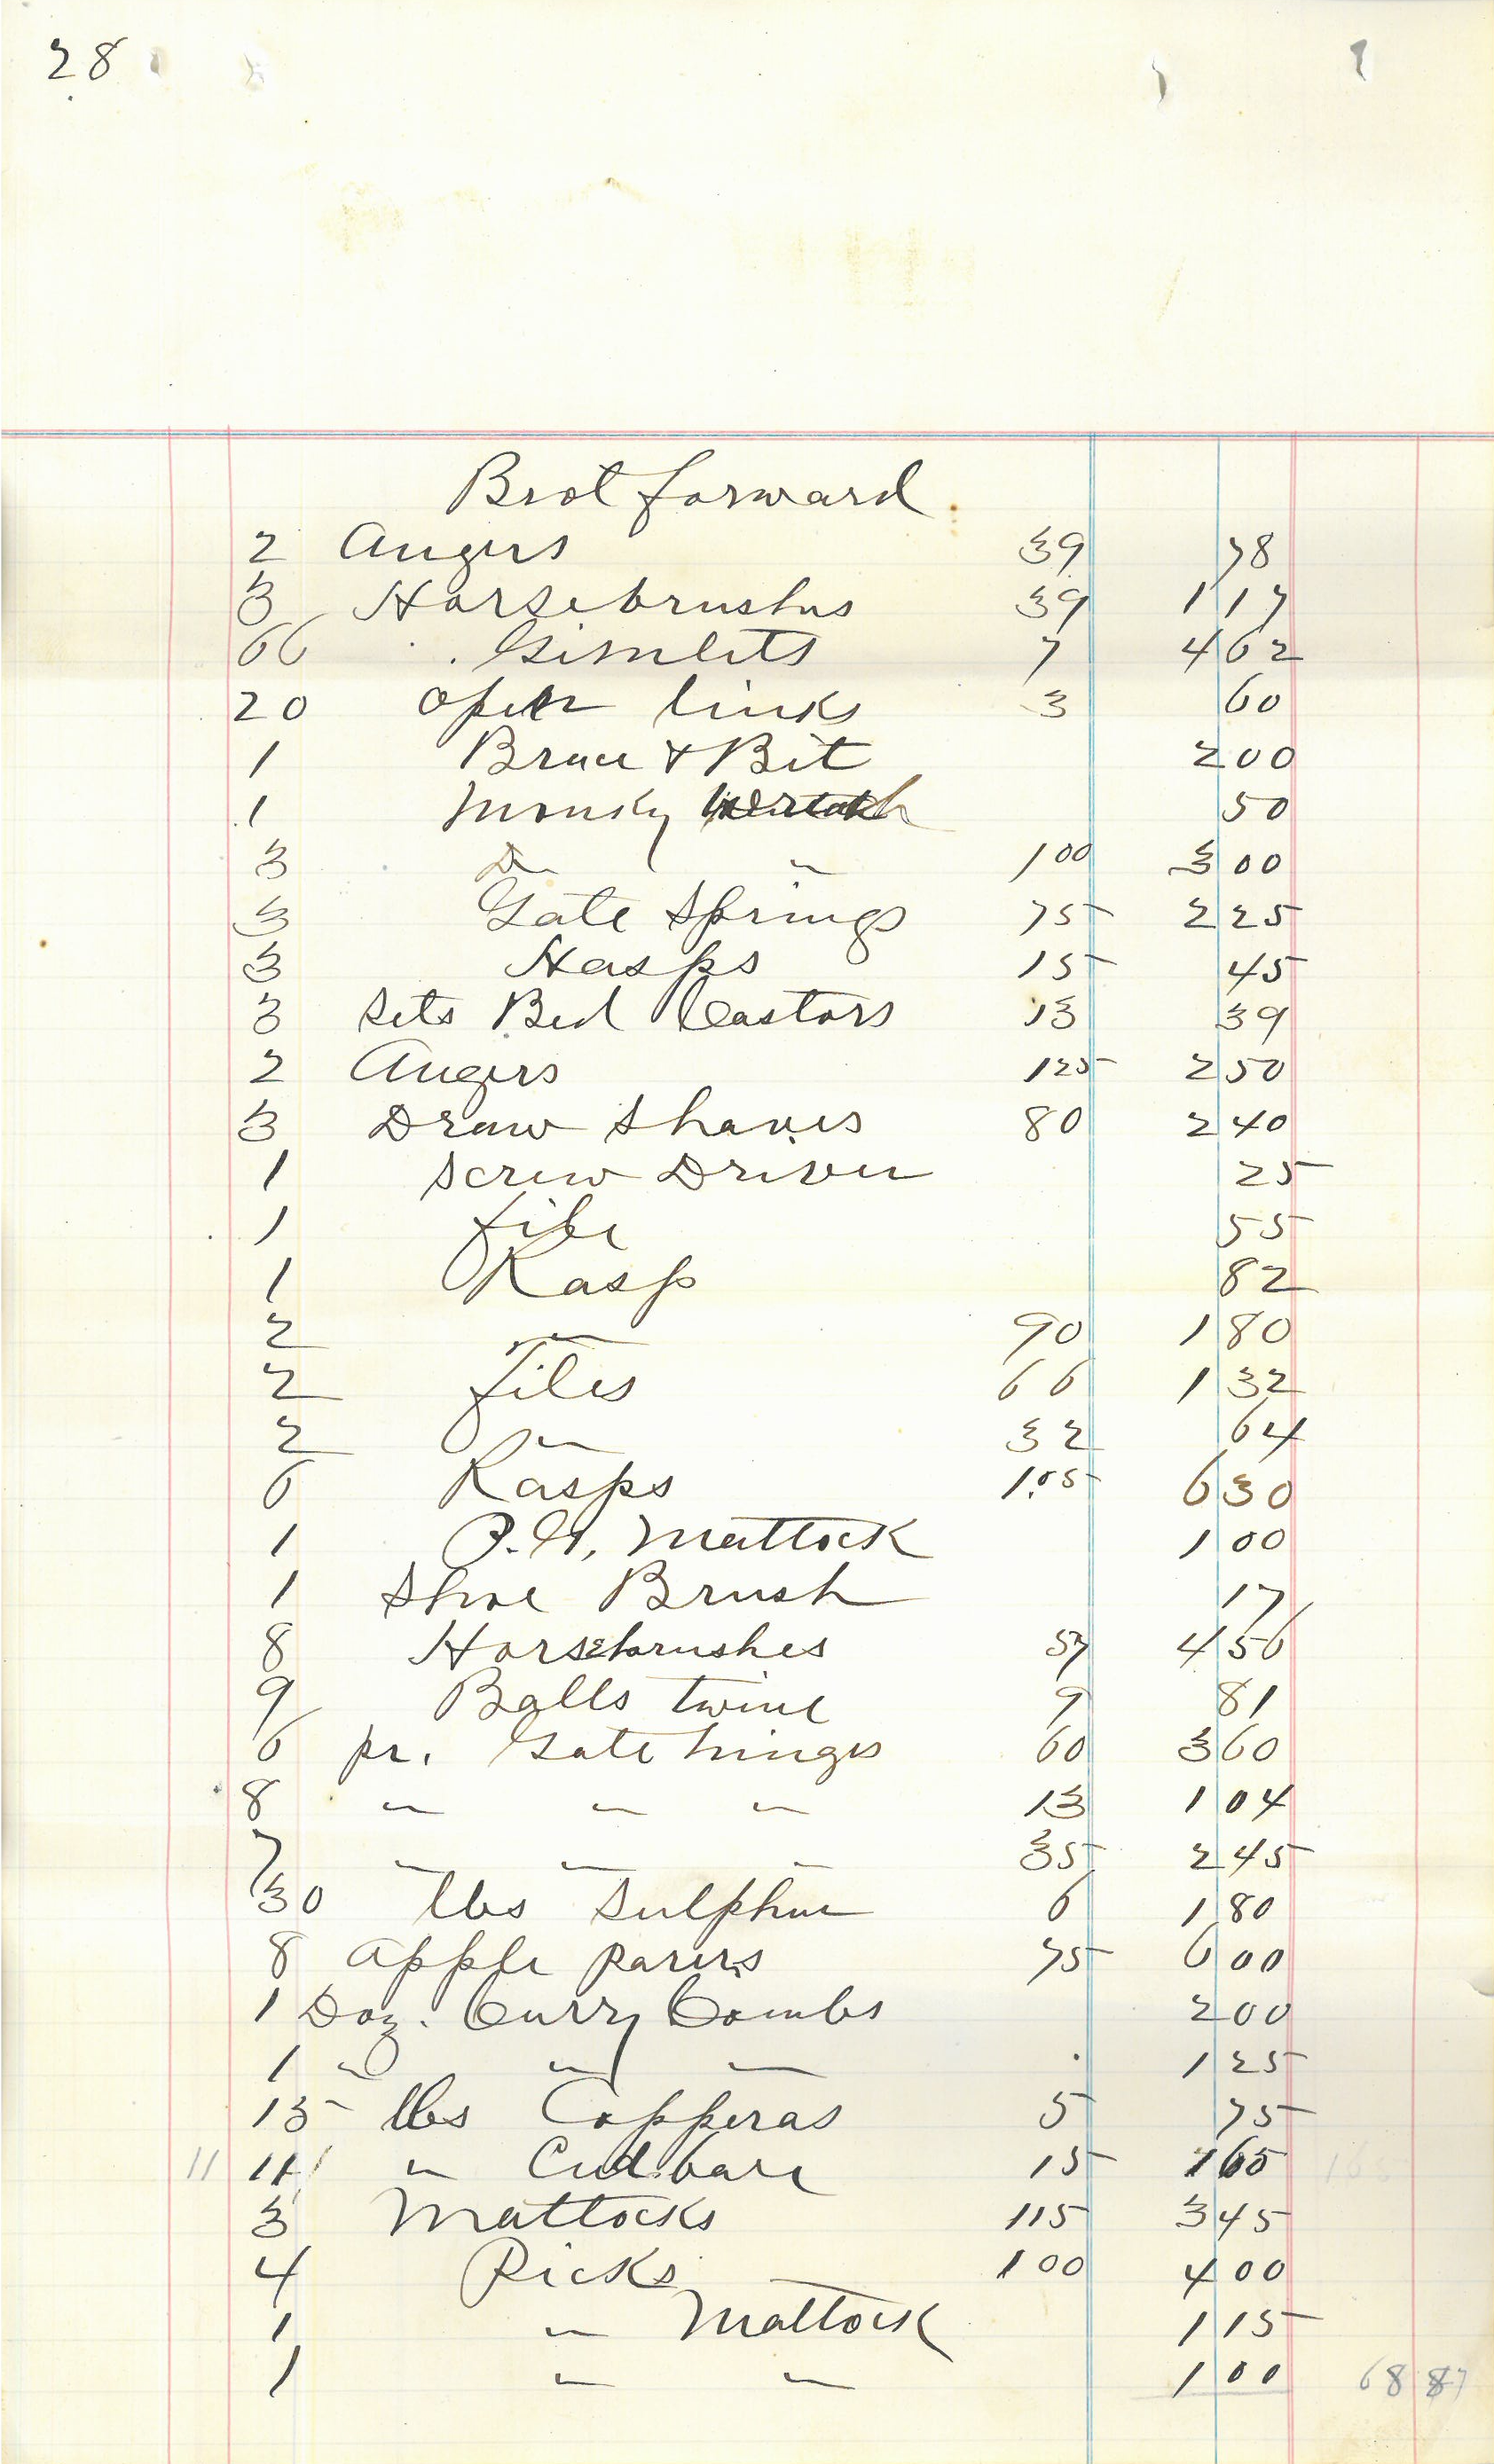 28
Brot forward
2 Augers 39 78
3 Horsebrushes 39 1 17
66 Gimlets 7 4 62
20 open links 3 60
1 Brace & Bit 2 00
1 Monky 50
3 Do " 1 00 3 00
3 Gate Springs 75 2 25
3 Hasps 15 45
3 Sets Bed Castors 13 39
2 Augers 125 2 50
3 Draw Shaves 80 2 40
1 Screw Driver 25
1 file 55
1 Rasp 82
2 " 90 1 80
2 Files 66 1 32
2 " 32 64
6 Rasps 1.05 6 30
1 Mattock 1 00
1 Shoe Brush 17
8 Horsebrushes 57 4 56
9 Balls twine 9 81
6 pr. Gate hinges 60 3 60
8 " " " 13 1 04
7 " " " 35 2 45
30 lbs Sulphur 6 1 80
8 apple parers 75 6 00
1 Doz. Curry Combs 2 00
1 " " " 1 25
15 lbs Copperas 5 75
11 11 " Cudbare 15 1 65
3 Mattocks 115 3 45
4 Picks 1 00 4 00
1 " Mattock 1 15
1 " " 1 00 68 87